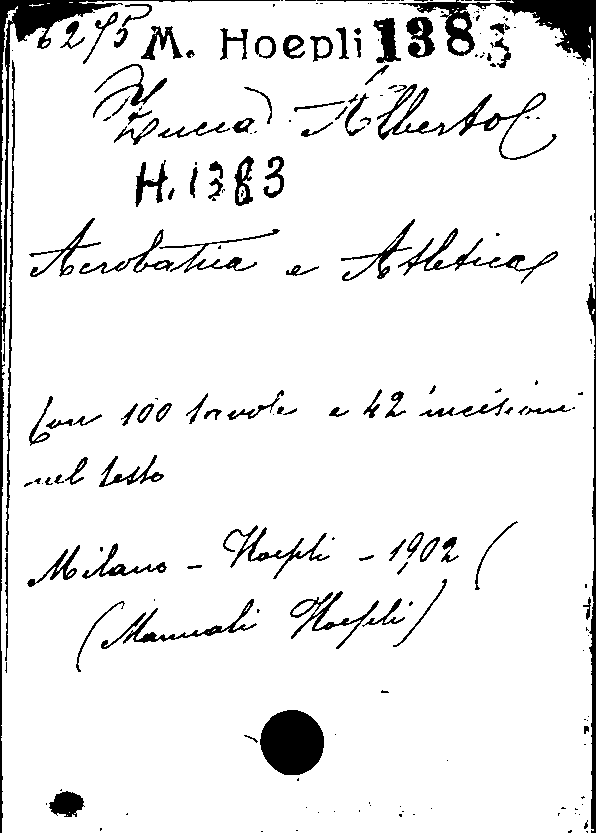 6275 M. Hoepli 1383
Zucca Alberto
H. 1383
Acrobatica e Atletica
Con 100 tavole e 42 incisioni
nel testo
Milano - Hoepli - 1902 (
(Manuali Hoepli)